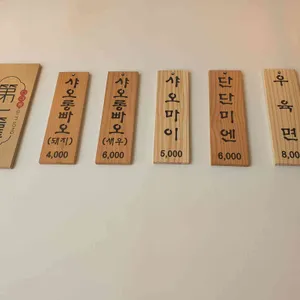 第一籠
샤오롱빠오
(돼지)
4,000
샤오롱빠오
(새우)
6,000
샤오마이
5,000
단단미엔
6,000
우육면
8,00